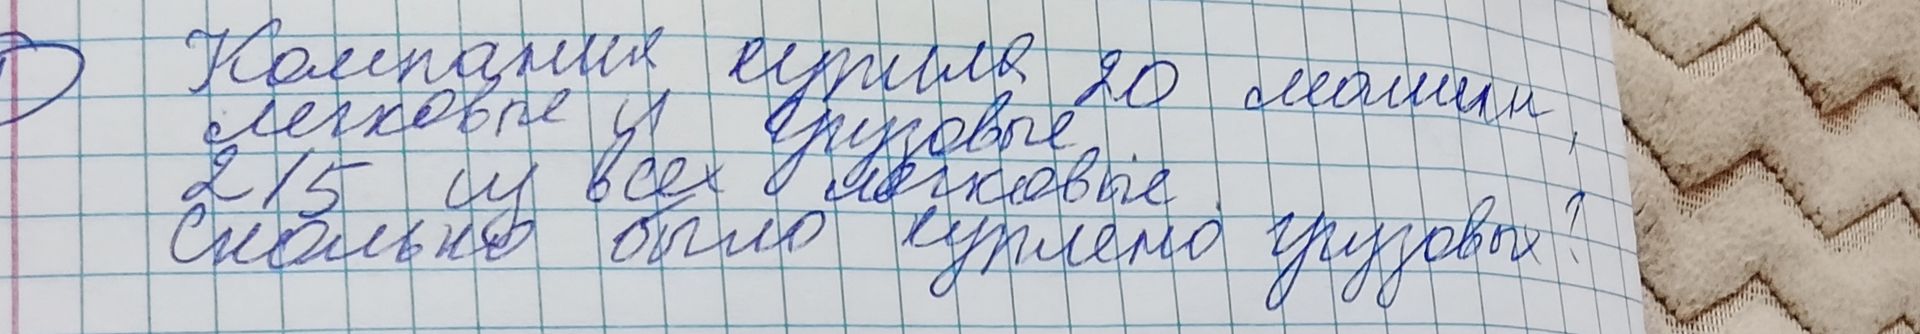 Компания купила 20 машин,
легковые и грузовые
2/5 из всех легковые.
Сколько было куплено грузовых?